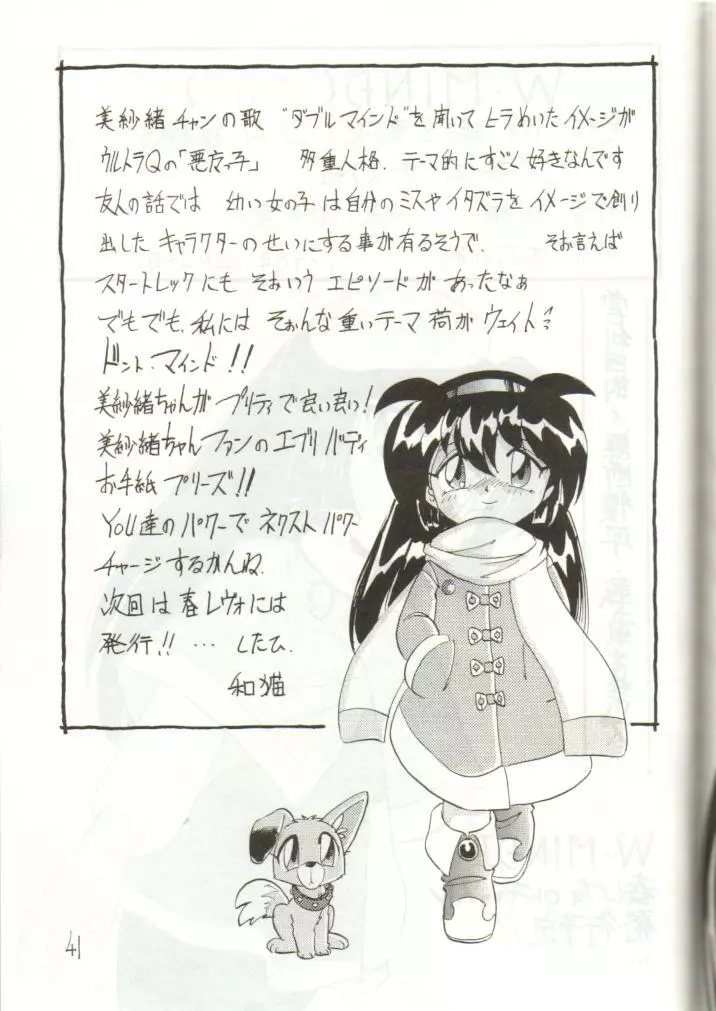 美紗緒チャンの歌 “ダブルマインド”を聞いてヒラめいたイメージが
ウルトラQの「悪友っ子」 多重人格、テーマ的にすごく好きなんです
友人の話では 幼い女の子は自分のミスやイタズラをイメージで創り
出したキャラクターのせいにする事が有るそうで、 そお言えば
スタートレックにも そおいう エピソードが あったなぁ
でもでも、私には そぉんな重いテーマ荷がウェイト
ドント・マインド!!
美紗緒ちゃんがプリティで良い良い!
美紗緒ちゃんファンのエブリバディ
お手紙プリーズ!!
YOU達のパワーでネクストパワー
チャージするかんね、
次回は春レヴォには
発行!! … したひ、
和猫
41